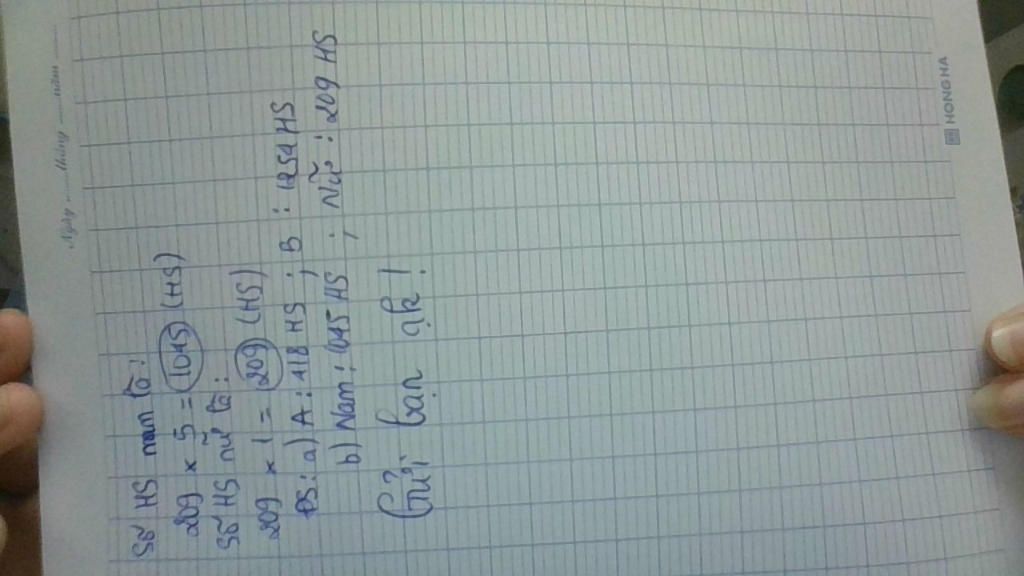 Ngày ...... tháng ...... năm ......
Số HS nam là:
209 x 5 = 1045 (HS)
Số HS nữ là:
209 x 1 = 209 (HS)
ĐS: a) A: 418 HS ; B : 1254 HS
b) Nam: 1045 HS ; Nữ : 209 HS
Gửi bạn ạk!
HONG HA